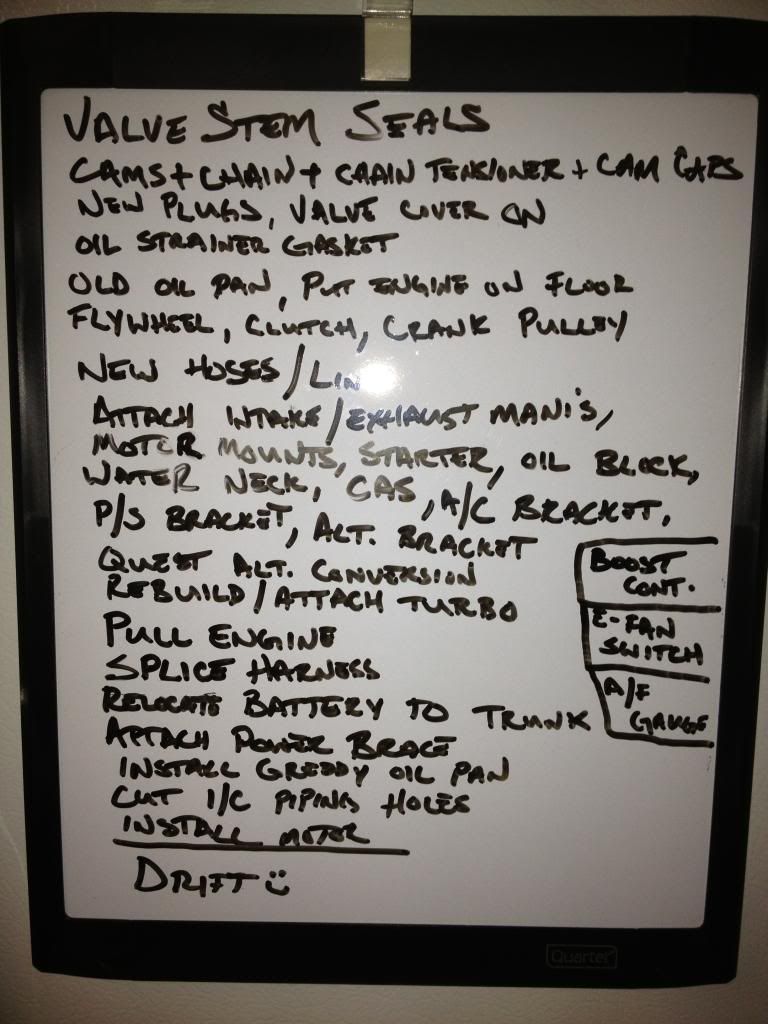 VALVE STEM SEALS
CAMS + CHAIN + CHAIN TENSIONER + CAM CAPS
NEW PLUGS, VALVE COVER ON
OIL STRAINER GASKET
OLD OIL PAN, PUT ENGINE ON FLOOR
FLYWHEEL, CLUTCH, CRANK PULLEY
NEW HOSES/
ATTACH INTAKE/EXHAUST MANI'S,
MOTOR MOUNTS, STARTER, OIL BLOCK,
WATER NECK, CAS, A/C BRACKET,
P/S BRACKET, ALT. BRACKET
QUEST ALT. CONVERSION
REBUILD/ATTACH TURBO
PULL ENGINE
SPLICE HARNESS
RELOCATE BATTERY TO TRUNK
ATTACH POWER BRACE
INSTALL GREDDY OIL PAN
CUT I/C PIPING HOLES
INSTALL MOTOR
DRIFT
BOOST
CONT.
E-FAN
SWITCH
A/F
GAUGE
Quartet